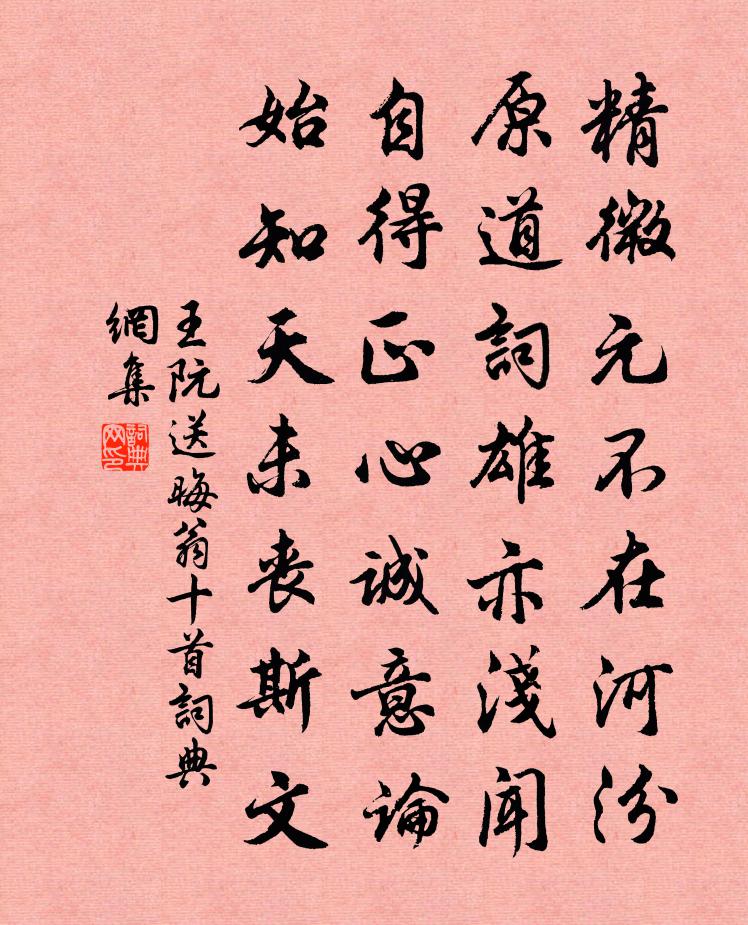 精微元不在河汾
原道詞雄亦淺聞
自得正心誠意論
始知天未喪斯文
王阮送晦翁十首詞典
網集
詞典
网印